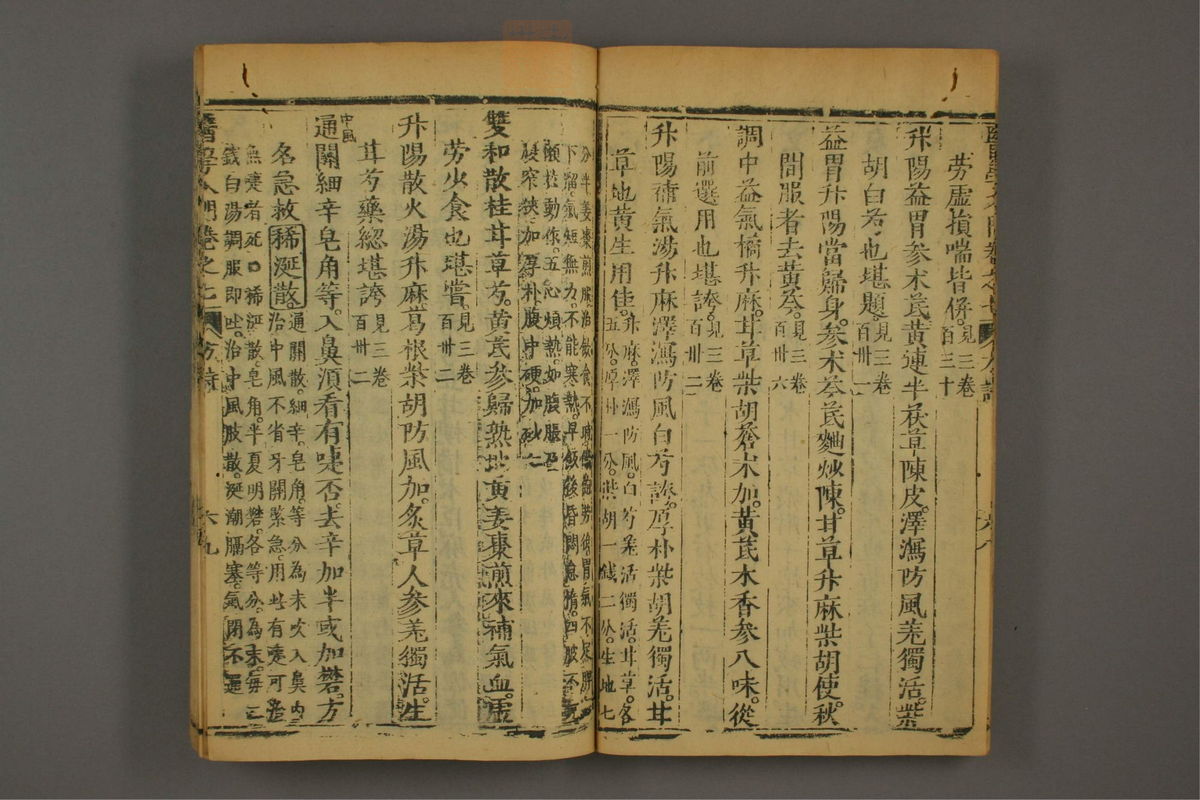 勞虛損喘皆倂見三卷
百三十
升陽益胃參朮芪黃連半苓草陳皮澤瀉防風羌獨活柴
胡白芍也堪題見三卷
百卅一
益胃升陽當歸身參朮苓芪麯炒陳甘草升麻柴胡使秋
間服者去黃芩見三卷
百卅六
調中益氣橘升麻甘草柴胡蒼朮加黃芪木香參八味從
前選用也堪誇見三卷
百卅二
升陽補氣湯升麻澤瀉防風白芍誇厚朴柴胡羌獨活甘
草地黃生用佳升麻澤瀉防風白芍羌活獨活甘草各
五分厚朴一分柴胡一錢二分生地七
分半姜棗煎服治飲食不時
下溜氣短無力不能寒熱早飯後昏悶怠惰四肢不
願於動作五心煩熱如腹脹及
窄狹加厚朴腹中硬加砂仁
雙和散桂甘草芍黃芪參歸熟地黃姜棗煎來補氣血虛
勞少食也堪嘗見三卷
百卅二
升陽散火湯升麻葛根柴胡防風加炙草人參羌獨活生
甘芍藥總堪誇見三卷
百卅二
中風
通關細辛皂角等入鼻須看有嚏否去辛加半或加礬方
名急救稀涎散通關散細辛皂角等分為末吹入鼻內
治中風不省牙關緊急用此有嚏可
無嚏者死稀涎散皂角半夏明礬各等分為末每三
錢白湯調服即吐治中風肢散涎潮膈塞氣閉不通
醫學入門卷之七 方詩 六九